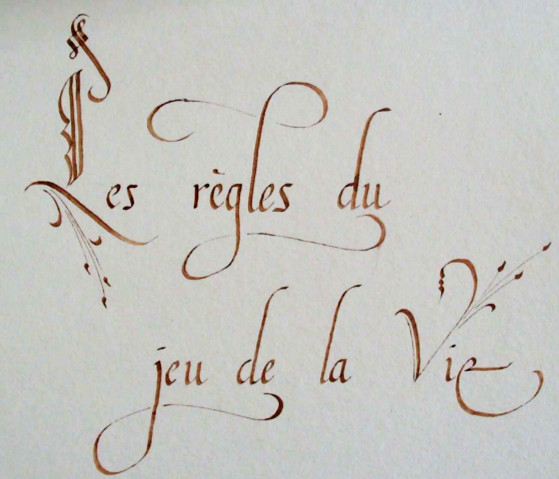 Les règles du
jeu de la Vie